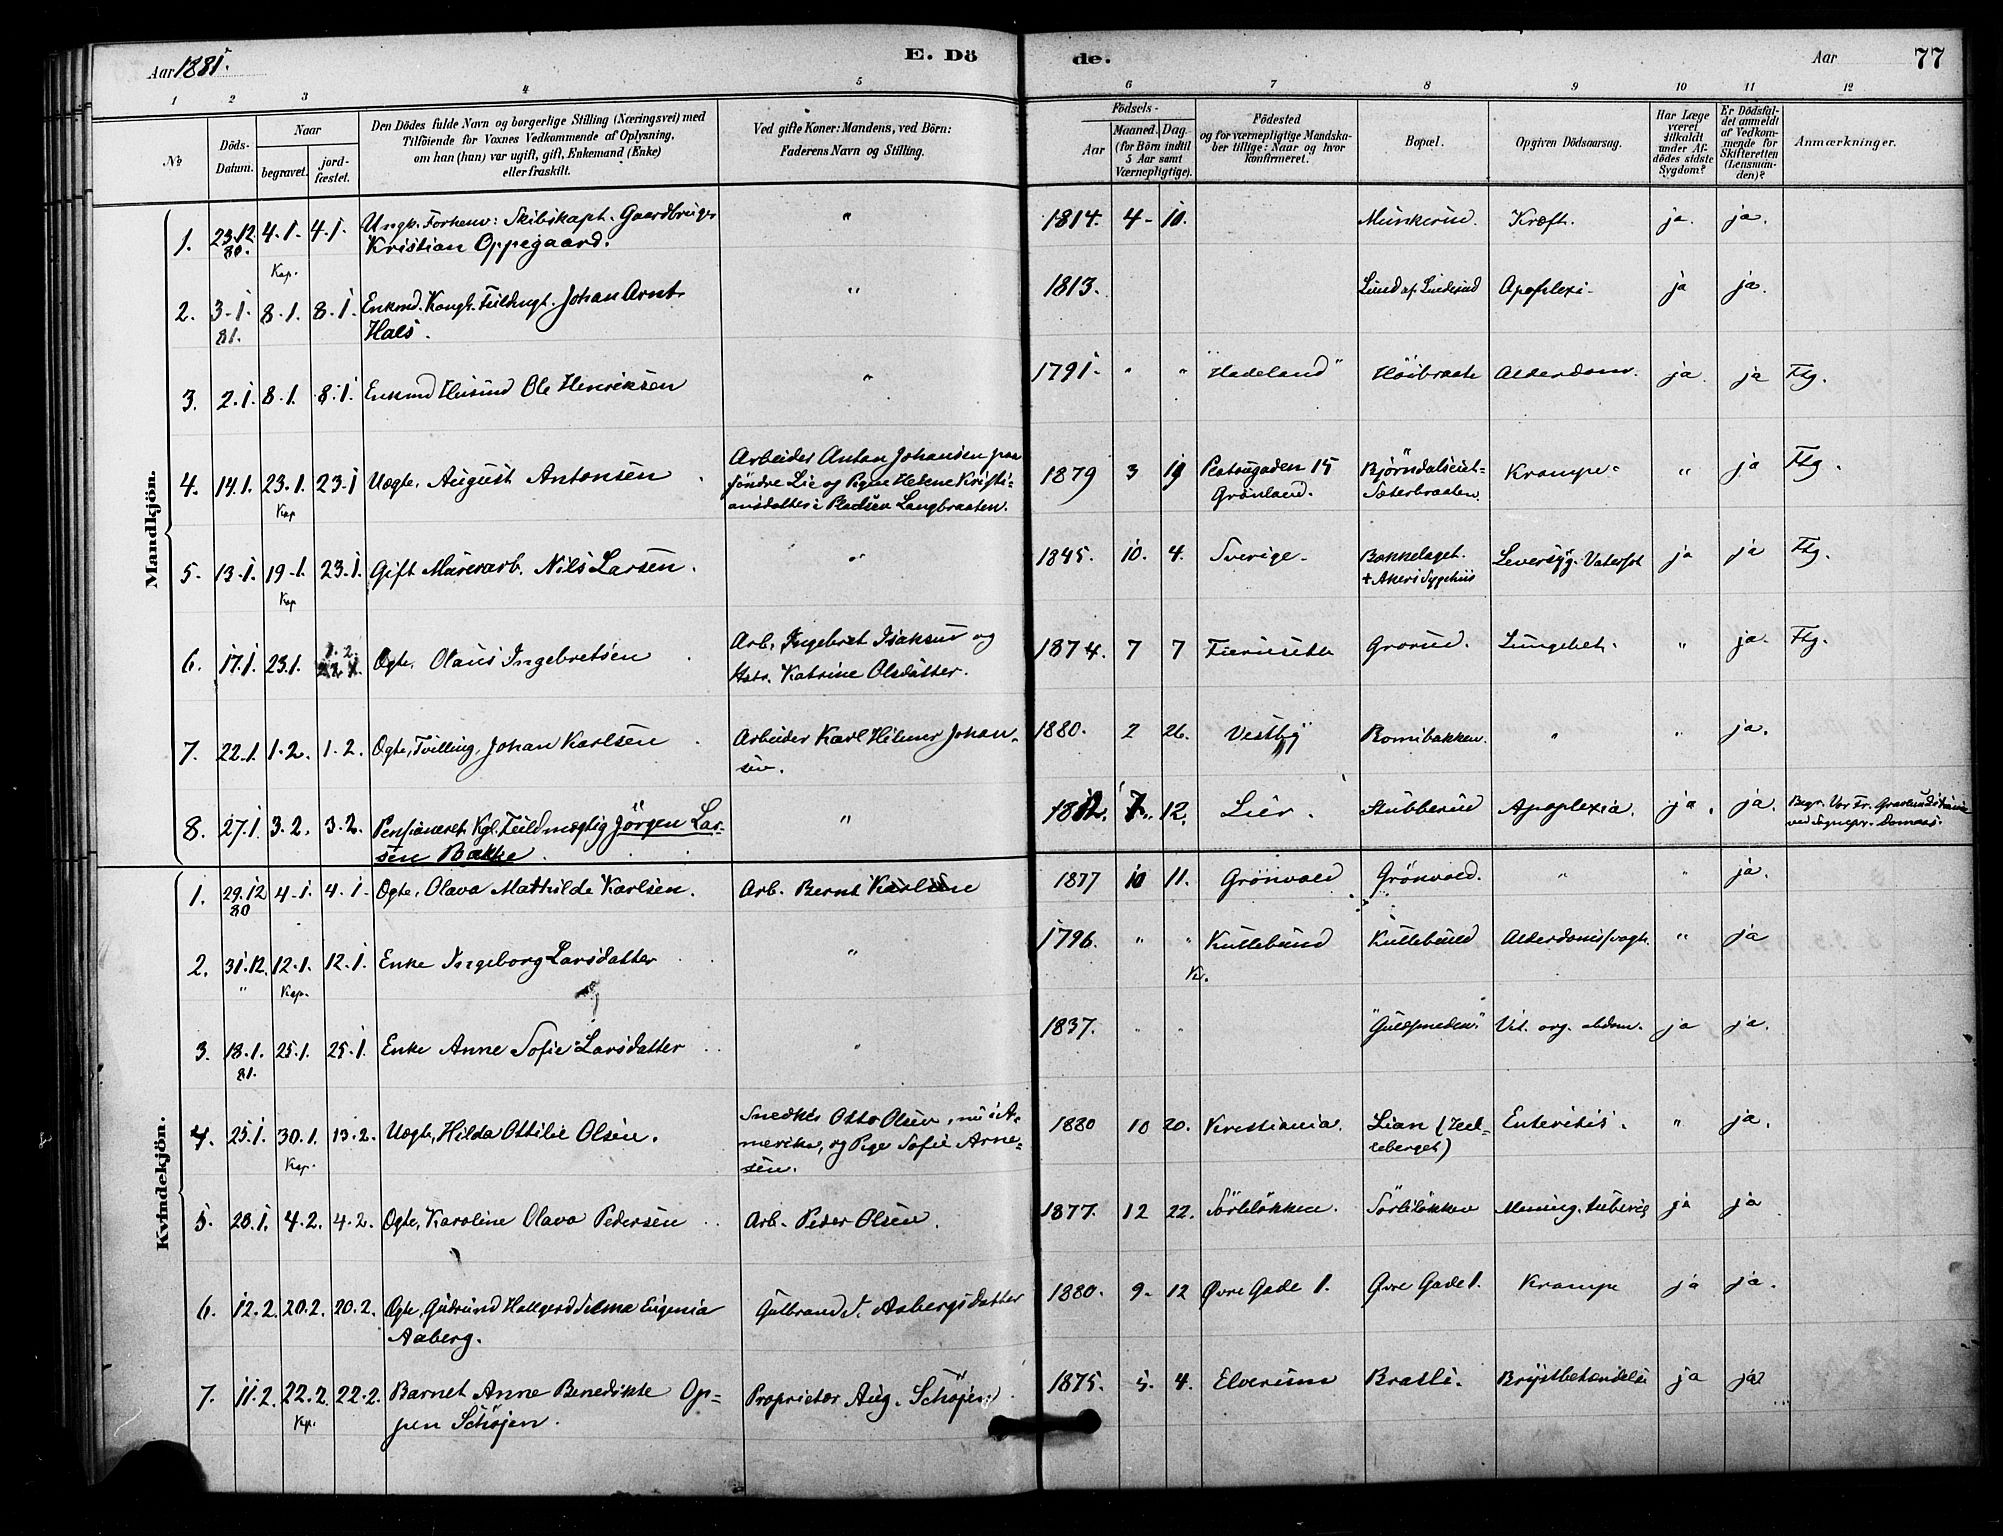 Aar 1881.
E. Dö
de.
Aar
77
1 2 3 4 5 6 7 8 9 10 11 12
No
Döds-
Datum.
Naar
begravet.
jord-
fæstet.
Den Dödes fulde Navn og borgerlige Stilling (Næringsvei) med
Tilföiende for Voxnes Vedkommende af Oplysning,
om han (hun) var ugift, gift, Enkemand (Enke)
eller fraskilt.
Ved gifte Koner: Mandens, ved Börn:
Faderens Navn og Stilling.
Födsels-
Aar
Maaned. Dag.
(for Börn indtil
5 Aar samt
Værnepligtige).
Födested
og for værnepligtige Mandska-
ber tillige: Naar og hvor
konfirmeret.
Bopæl.
Opgiven Dödsaarsag.
Har Læge
været
tilkaldt
under Af-
dödes sidste
Sygdom?
Er Dödsfal-
det anmeldt
af Vedkom-
mende for
Skifteretten
(Lensman-
den)?
Anmærkninger.
Mandkjön.
1. 23.12. 4.1. 4.1. Ungk. Forhenv: Skibskapt. Gaardbruger " 1814. 4- 10. Munkerud. Kræft. ja. ja.
80. Kristian Oppegaard.
Kap.
2. 3-1. 8-1. 8-1. Enkmd. Kongl. Fuldmgt. Johan Arnt " 1813. Lund af Apoplexi- ja ja.
81. Hals.
3. 2.1. 8-1. 8.1. Enkmd Husmd Ole Henriksen " 1791. " " "Hadeland" Höibraate Alderdom. ja. ja Ftg.
4. 14.1. 23.1. 23.1 Uægte, August Antonsen Arbeider Anton Johansen paa 1879 3 19 15 Krampe " ja Ftg.
Kap søndre Lie og Pige Helene Kristi- Grönland. Sæterbraaten
ansdatter i Langbraaten.
5. 13.1. 19-1. 23.1. Gift Murerarb. Nils Larsen. " 1845. 10. 4. Sverige. Bækkelaget. Leversyg. Vatersot ja ja Ftg.
Kap + Akers Sygehus
1.2.
6. 17.1. 23.1. 22.1. Ægte, Olaus Ingebretsen Arb. Ingebret Isaksen og 1874. 7 7 Grorud. Lungebet. " ja. Ftg.
Hstr. Katrine Olsdatter.
7. 22.1. 1.2. 1.2. Ægte, Tvilling, Johan Karlsen Arbeider Karl Hilmer Johan- 1880. 2 26. Vestby " " ja.
sen.
8. 27.1. 3.2. 3.2. Pensioneret Kgl. Fuldmægtig Jörgen Lar- " 1812. 7. 12. Lier. Stubberud Apoplexia. ja. ja. Begr. Vor Fr. Gravlund
sen Bakke. ved Sognepr.
Kvindekjön.
1. 29.12 4.1. 4.1. Ægte, Olava Mathilde Karlsen. Arb. Bernt Karlsen 1877 10 11. Grönvold Grönvold. " " ja.
80
2. 31.12. 12.1. 12.1. Enke Ingeborg Larsdatter " 1796. " " Kullebund Kullebund " ja
" Kap. Kr.
3. 18.1. 25.1. 25.1. Enke Anne Sofie Larsdatter " 1837. " " "Guldsmeden." Vit. org. ja ja.
81.
4. 25.1. 30.1. 13.2. Uægte, Hilda Ottilie Olsen. Snedker Otto Olsen, nu i A- 1880 10 20. Kristiania. Lian Enteritis. " ja.
Kap. merika, og Pige Sofie Arne-
sen.
5. 28.1. 4.2. 4.2. Ægte, Karoline Olava Pedersen Arb. Peder Olsen. 1877. 12 22. Sörliløkken. Sörliløkken Mening. tuberc. ja ja
6. 12.2. 20.2. 20.2. Ægte, Gudrund Hallgerd Selma Eugenia Gulbrand Aabergsdatter 1880. 9. 12 Øvre Gade 1. Øvre Gade 1. Krampe ja ja.
Aaberg.
7. 11.2. 22.2. 22.2. Barnet Anne Benedikte Op- Proprietær Aug. Schøjen 1875. 5. 4. Elverum Bratli. Brystbetændelse ja ja
Kp. pen Schøjen.